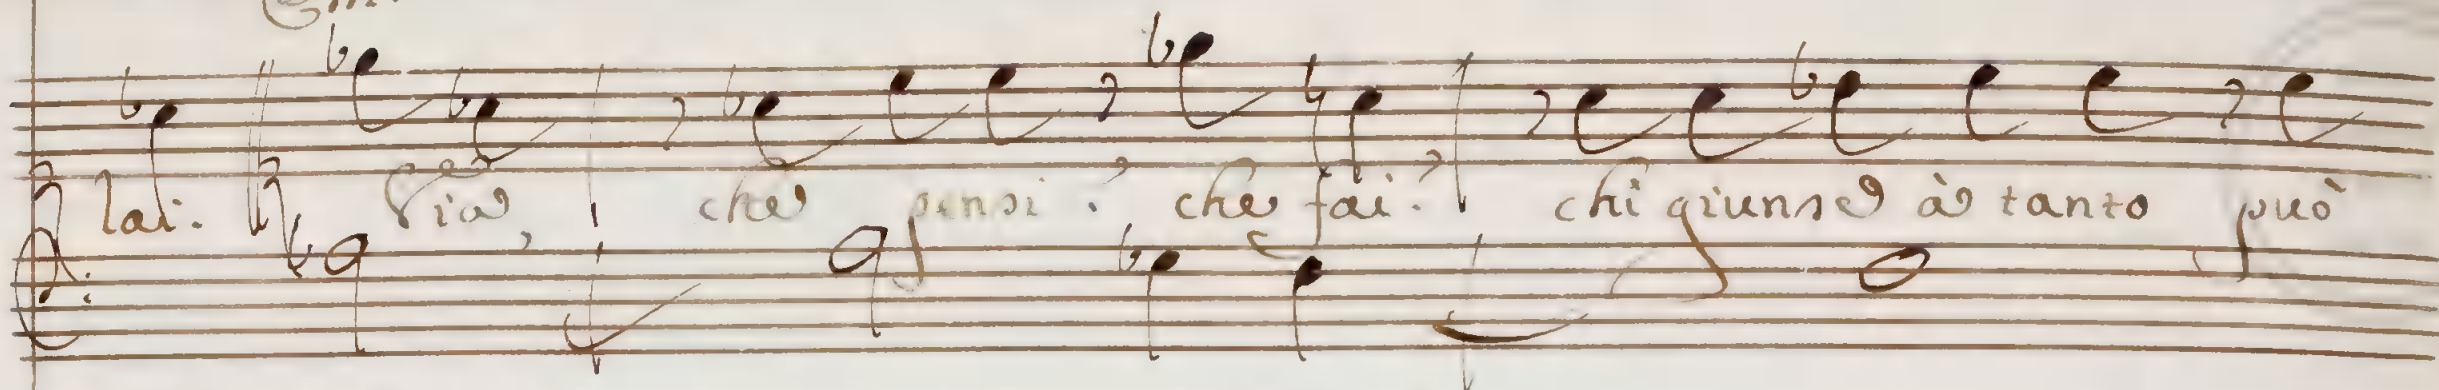 lai. Via, che pensi? che fai? chi giunse à tanto può